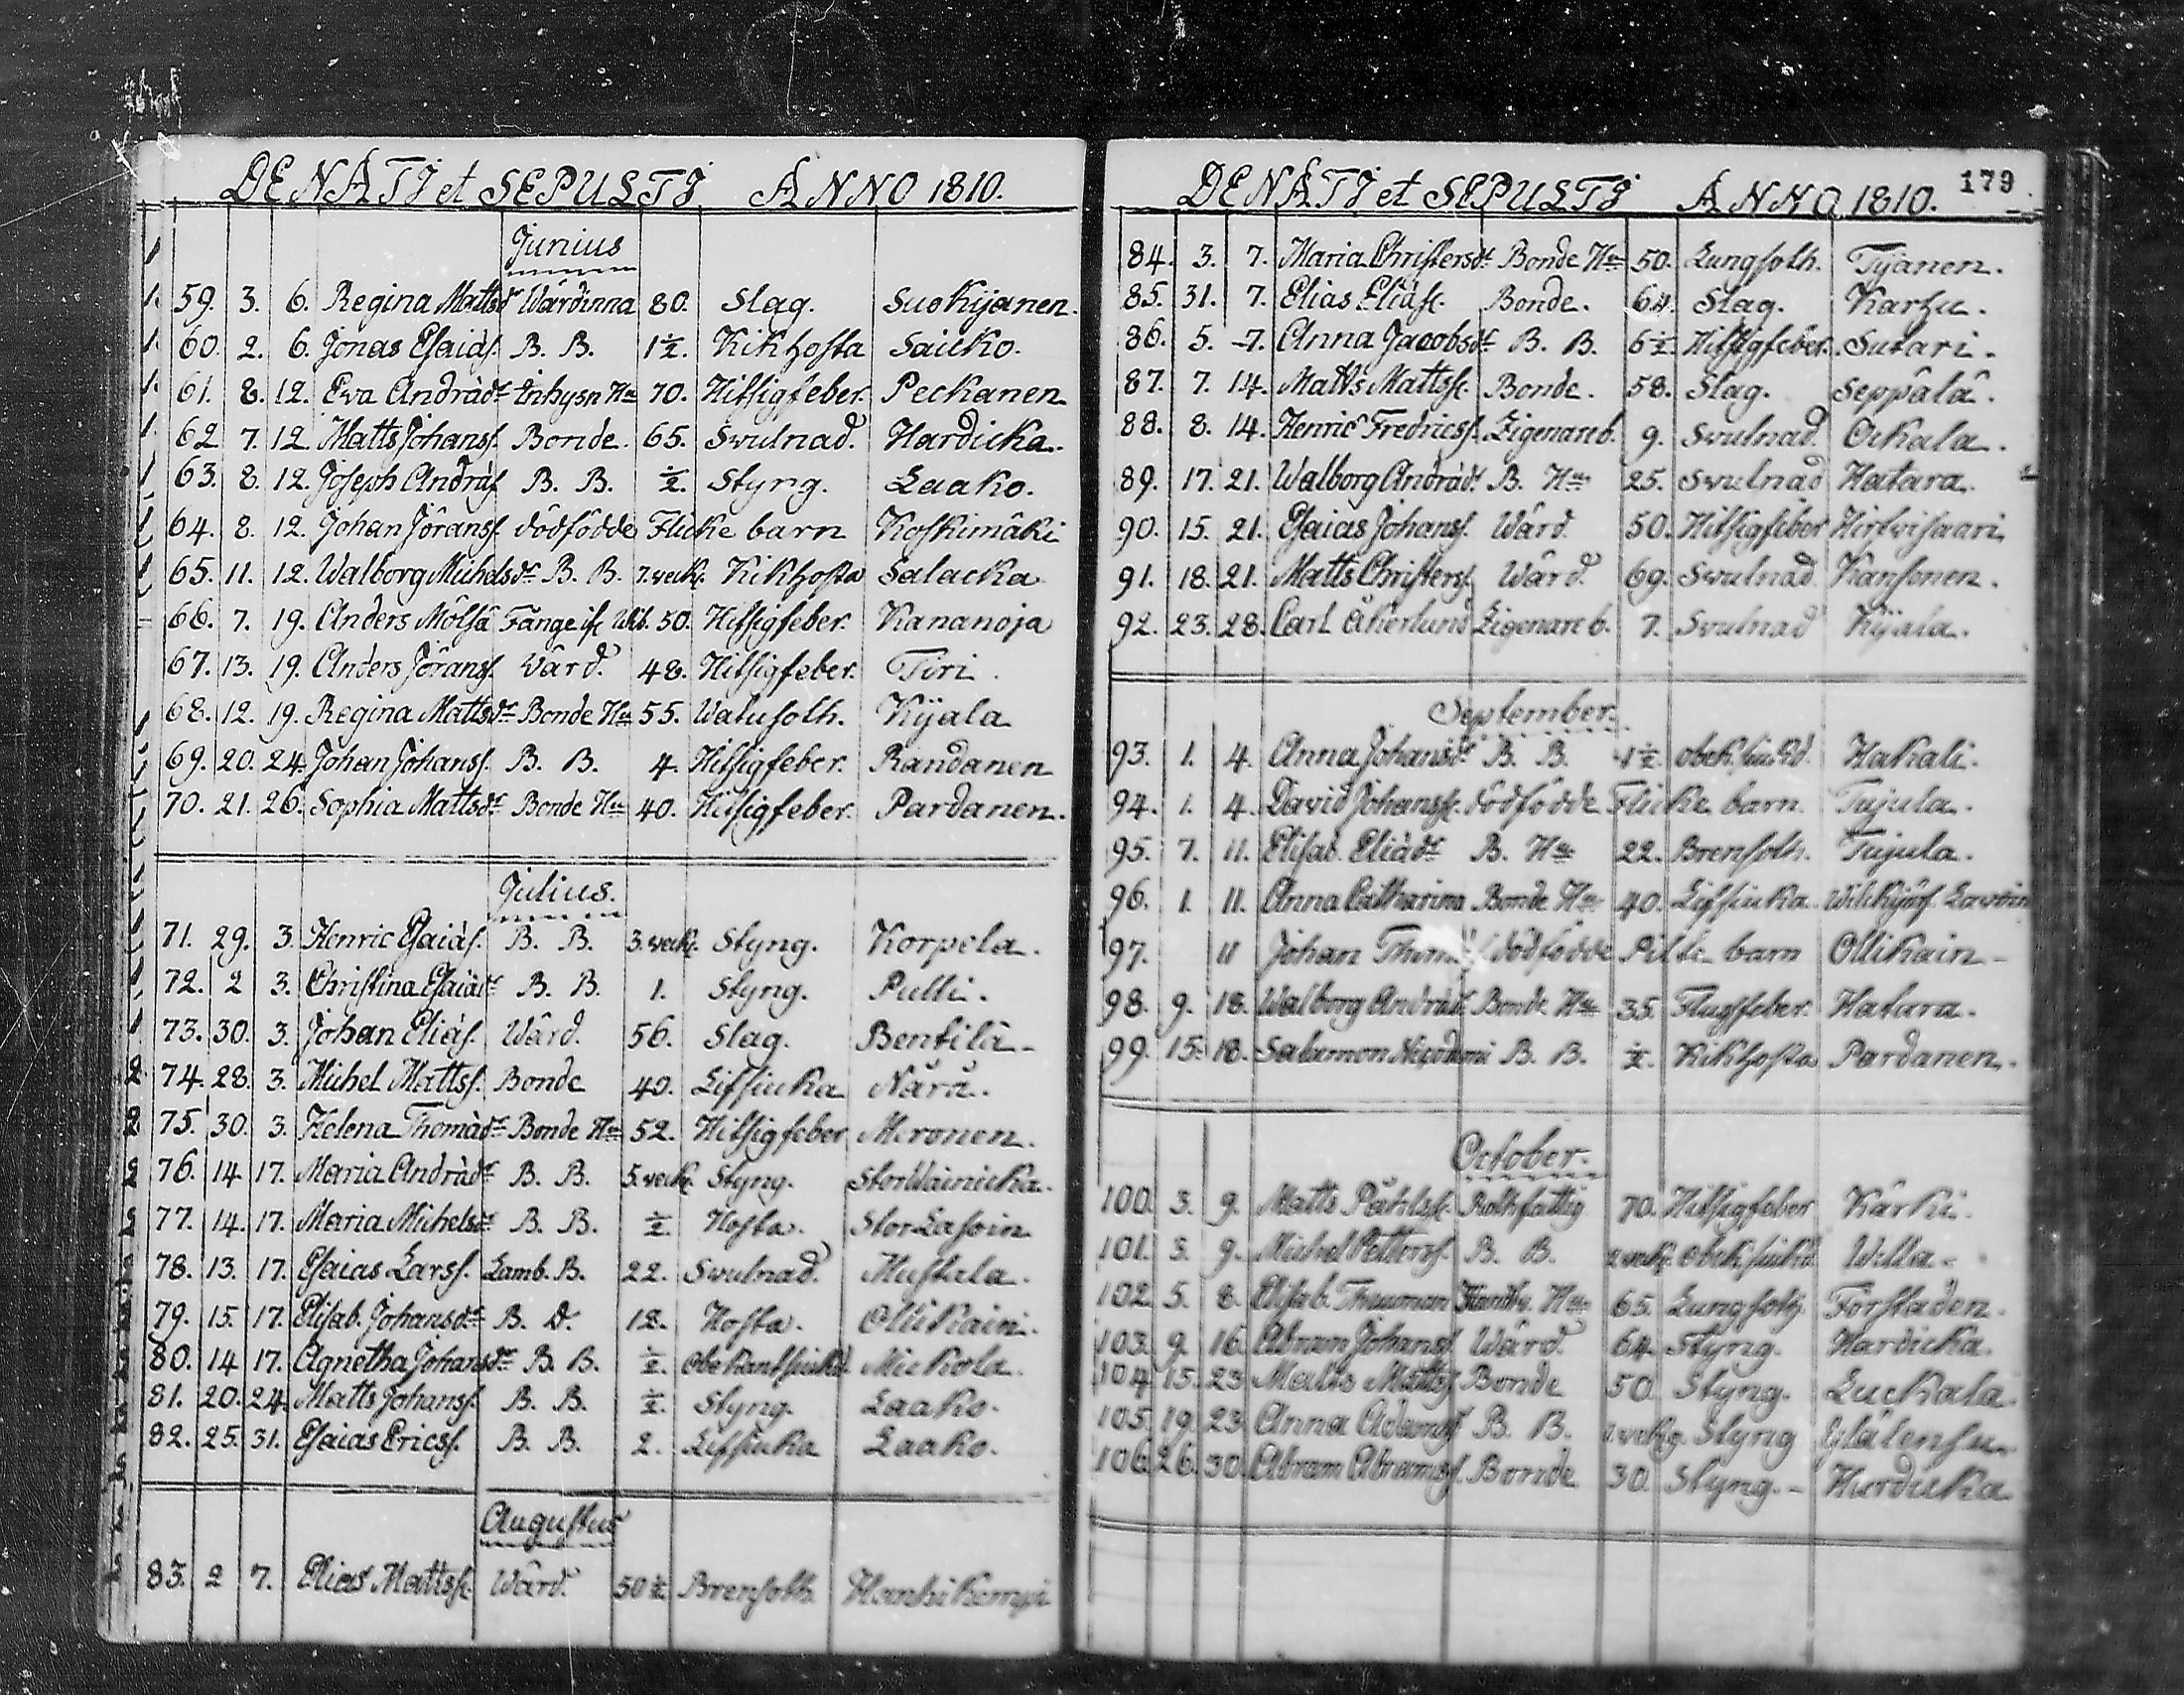 DENATJ et SEPULTJ ANNO 1810.
Junius
59. 3. 6. Regina Mattsdr Wärdinna 80. Slag. Suokijanen.
60. 2. 6. Jonas Esaiæs. B. B. 1½. Kikhosta Saicko.
61. 8. 12. Ewa Andrædr Inhysn Hu 70. Hitsigfeber. Peckanen
62 7. 12. Matts Johanss. Bonde. 65. Swulnad. Hardicka.
63. 8. 12. Joseph Andræs B. B. ½. Styng. Laako.
64. 8. 12. Johan Jöranss. dödfödde Flicke barn Koskimäki
65. 11. 12. Walborg Michelsdr B. B. 7. veck. Kikhosta Salacka
66. 7. 19. Anders Mölsä Fånge 50. Hitsigfeber. Kananoja
67. 13. 19. Anders Jöranss. Wärd. 48. Hitsigfeber. Tiri.
68. 12. 19. Regina Mattsdr Bonde Hu 55. Watusoth. Kijala
69. 20. 24. Johan Johanss. B. B. 4. Hitsigfeber. Randanen
70. 21. 26. Sophia Mattsdr Bonde Hu 40. Hitsigfeber. Pardanen.
Julius.
71. 29. 3. Henric Esaiæs. B. B. 3. veck. Styng. Korpela.
72. 2 3. Christina Esaiædr B. B. 1. Styng. Pulli.
73. 30. 3. Johan Eliæs. Wärd. 56. Slag. Bentilä
74. 28. 3. Michel Mattss. Bonde 40. Lifsiuka Närä.
75. 30. 3. Helena Thomædr Bonde Hu 52. Hitsigfeber Mironen.
76. 14 17. Maria Andrædr B. B. 5. veck. Styng. StorWainicka.
77. 14. 17. Maria Michelsdr B. B. ½. Hosta. StorLasoin
78. 13. 17. Esaias Larss. Lamb. B. 22. Swulnad. Mustala.
79. 15. 17. Elisab. Johansdr B. D. 12. Hosta. Ollikain.
80. 14 17. Agnetha Johansdr B. B. ½. Obekantsiukd. Mickola.
81. 20. 24. Matts Johanss. B. B. ½. Styng. Laako.
82. 25. 31. Esaias Ericss. B. B. 2. Lifsiuka Laako.
Augustus
83. 2 7. Elias Mattss. Wärd. 50½ Brensoth
DENATJ et SEPULTJ ANNO 1810. 179
84. 3. 7. Maria Christersdr Bonde Hu 50. Lungsoth. Tijanen.
85. 31. 7. Elias Eliæss. Bonde. 64. Slag. Karhu.
86. 5. 7. Anna Jacobsdr B. B. 6½. Hitsigfeber. Sutari.
87. 7. 14. Matts Mattss. Bonde. 58. Slag. Seppälä.
88. 8. 14. Henric Fredricss. Zigenare b. 9. Swulnad. Orkala.
89. 17. 21. Walborg Andrædr. B. Hu 25. Swulnad Hatara.
90. 15. 21. Esaias Johanss. Wärd. 50. Hitsigfeber Hirfwisaari
91. 18. 21. Matts Christerss. Wärd. 69. Swulnad. Kansonen.
92. 23. 28. Carl Åkerlund Zigenare b. 7. Swulnad Kijala.
September.
93. 1. 4. Anna Johansdr B. B. 1½. obek. siukd. Hakali.
94. 1. 4. David Johanss. dödfödde Flicke barn. Tujula.
95. 7. 11. Elisab. Eliædr B. Hu 22. Brensoth. Tujula.
96. 1. 11. Anna Catharina Bonde Hu 40. Lifsiuka
97. 11 Johan dödfödde Pilte barn Ollikain
98. 9. 18. Walborg Andrædr Bonde Hu 35. Flussfeber. Hatara.
99. 15. 18. Salamon Nicodemi B. B. ½. Kikhosta Pardanen.
October.
100. 3. 9. Matts Påhlss. Rothfattig 70. Hitsigfeber Kärki.
101. 3. 9. Michel Petterss. B. B. 2 veck. obek. siukd. Willa.
102 5. 8. Elisab. Thauman Hu 65. Lungsoth Förstaden.
103. 9. 16. Abram Johanss. Wärd. 64. Styng. Hardicka.
104 15. 23 Matts Mattss Bonde 50 Styng. Luckala.
105. 19 23 Anna B. B. Styng
106. 26. 30. Abram Abramss. Bonde 30. Styng. Hurdicka